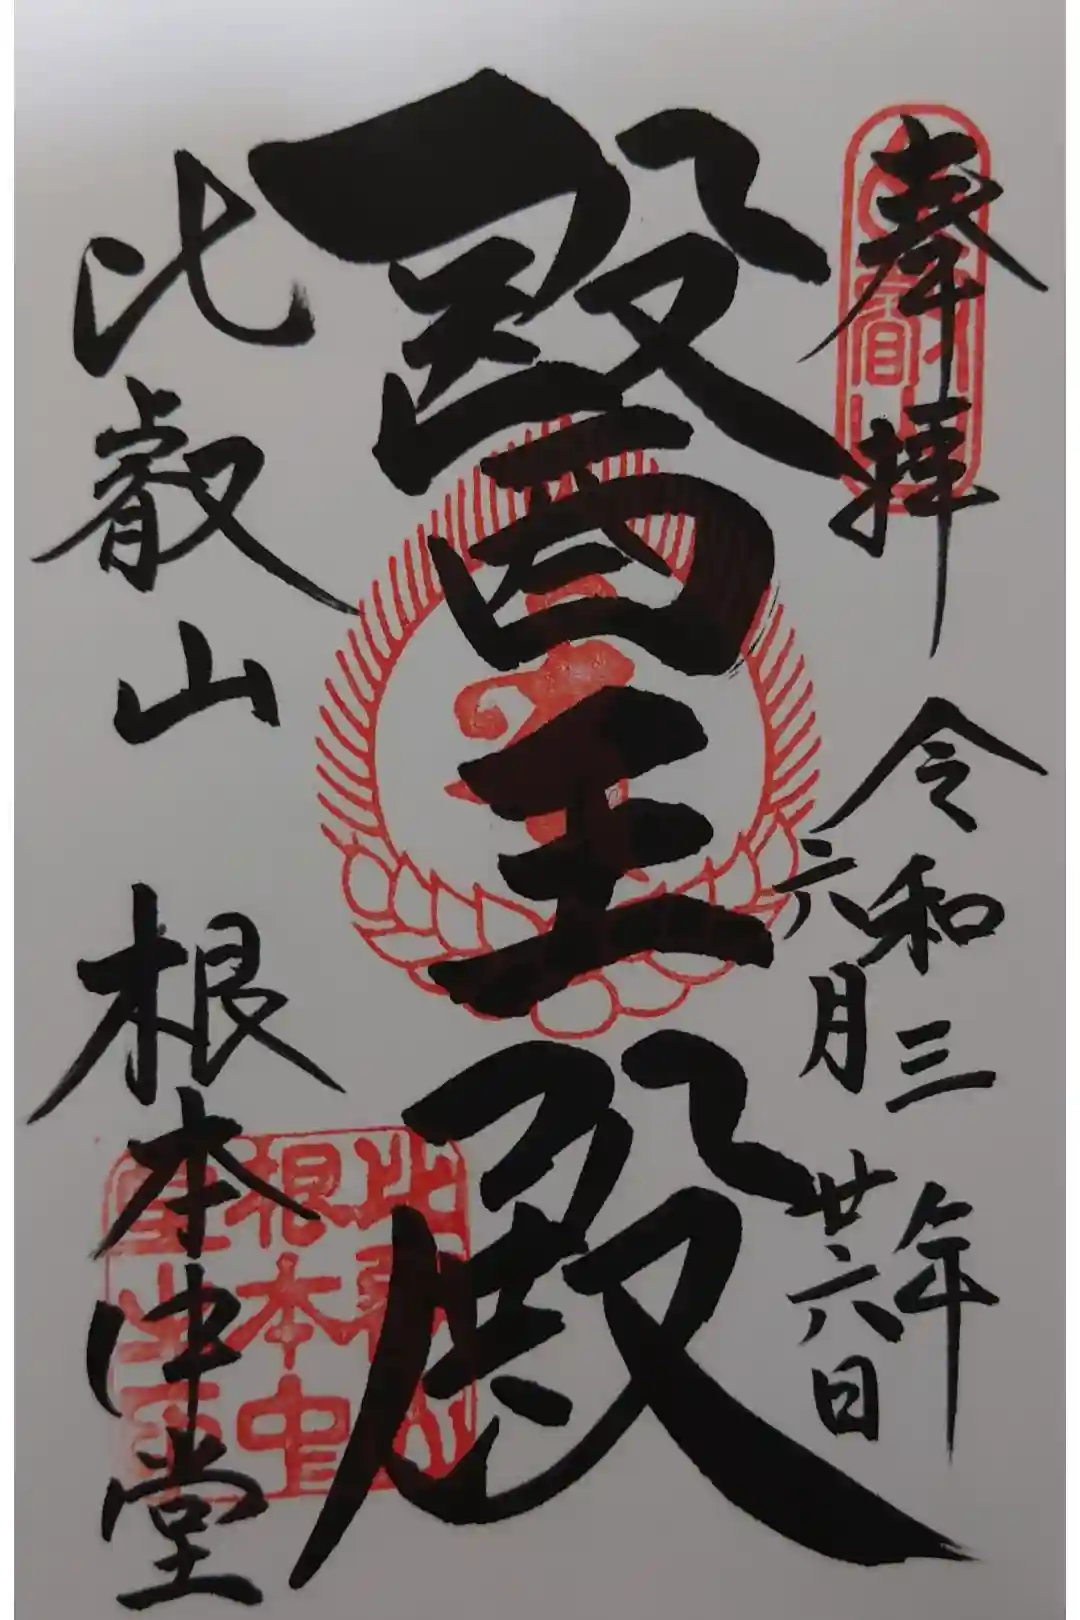 奉拝
令和三年
六月廿六日
醫王殿
比叡山 根本中堂
比叡山
根本中
堂之璽